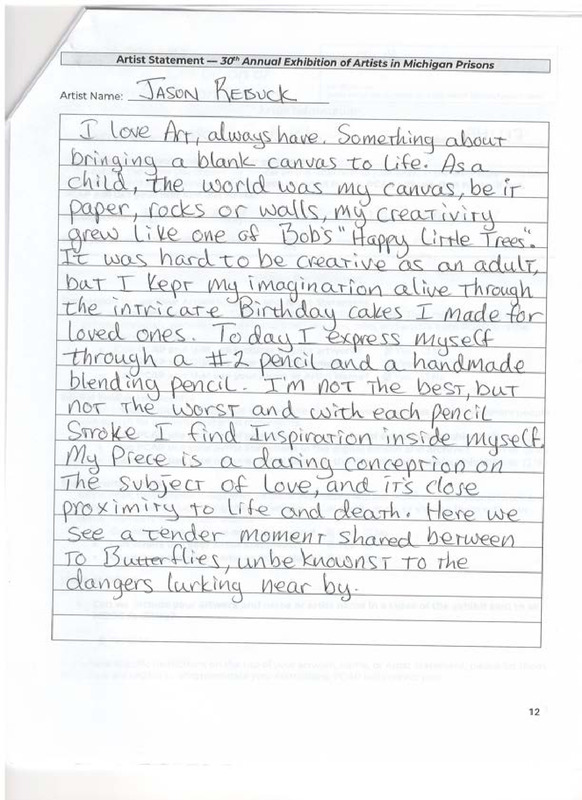 Artist Statement — 30th Annual Exhibition of Artists in Michigan Prisons
Artist Name: JASON REBUCK
I love Art, always have. Something about
bringing a blank canvas to life. As a
child, the world was my canvas, be it
paper, rocks or walls, my creativity
grew like one of Bob's "Happy Little Trees".
It was hard to be creative as an adult,
but I kept my imagination alive through
the intricate Birthday cakes I made for
loved ones. Today I express myself
through a #2 pencil and a handmade
blending pencil. I'm not the best, but
not the worst and with each pencil
Stroke I find Inspiration inside myself.
My Piece is a daring conception on
The subject of Love, and it's close
proximity to life and death. Here we
see a tender moment shared between
To Butterflies, unbeknownst to the
dangers lurking near by.
12